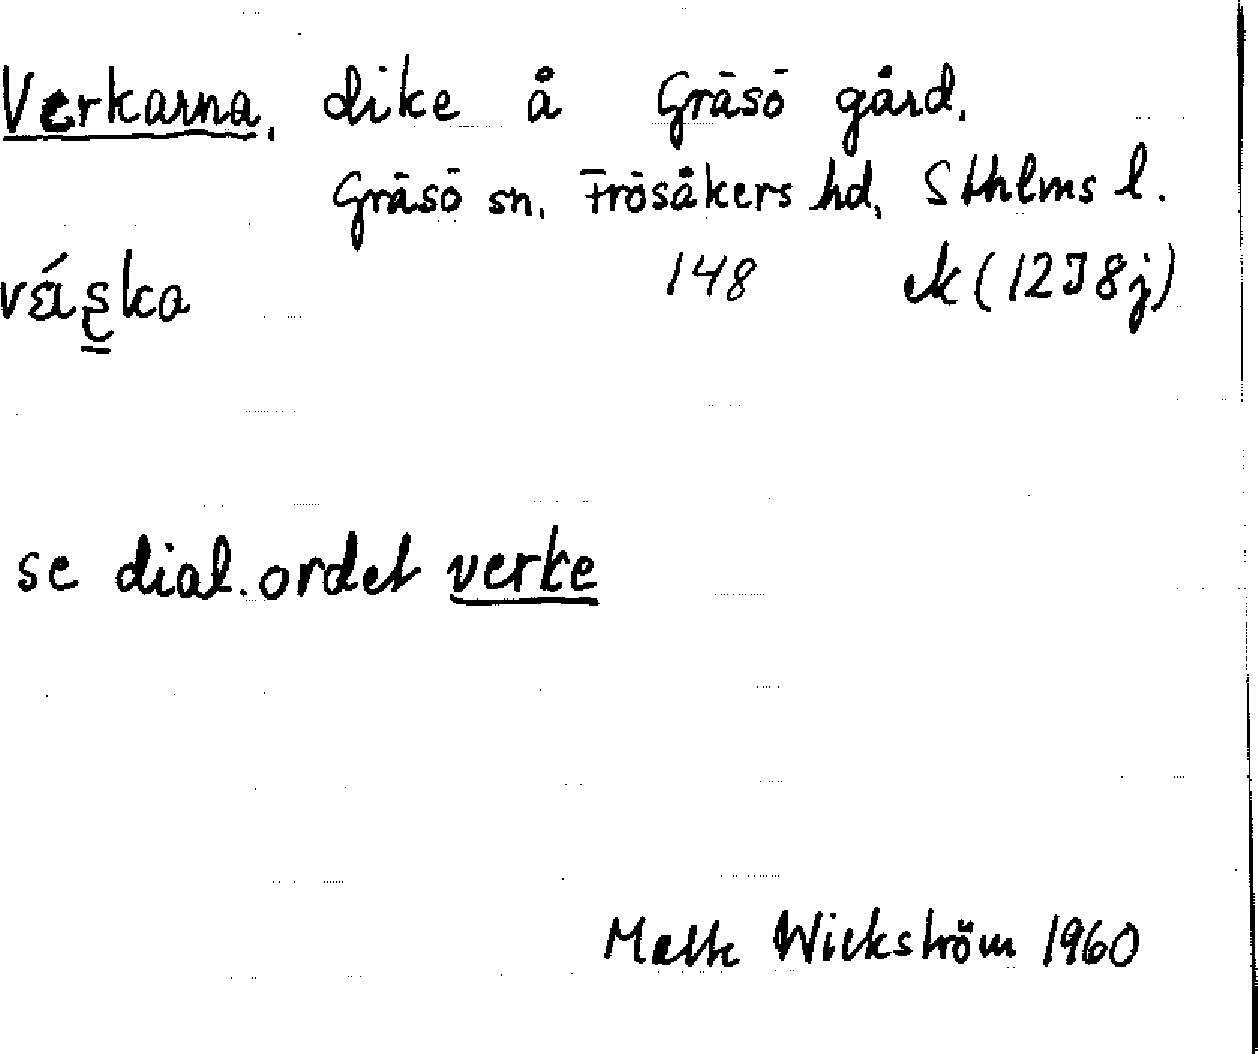 Verkarna, dike å Gräsö gård.
Gräsö sn, Frösåkers hd, Sthlms l.
148 ek (12I8j)
se dial. ordet verke
Wickström 1960